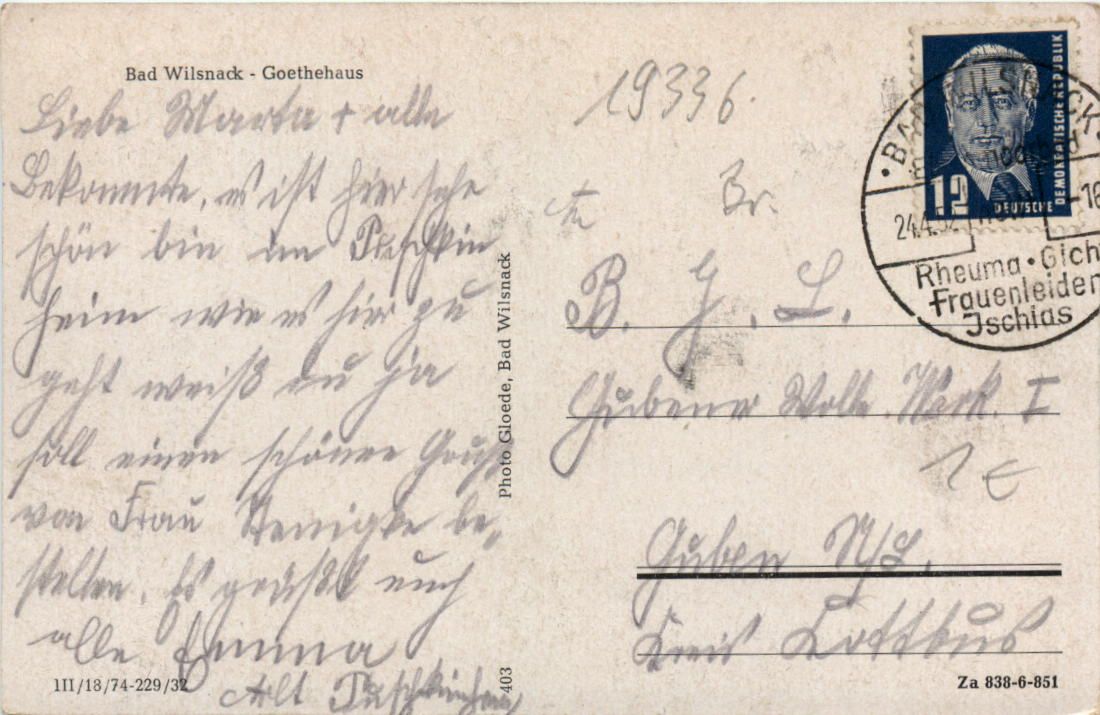 Bad Wilsnack - Goethehaus
Liebe Marta + alle
Bekannte, es ist hier sehr
schön bin im Puschkin
heim wie es hier zu
geht weiß du ja
soll einen schönen Gruß
von Frau be-
stellen. Es grüßt euch
alle Emma
Alt Puschkinhaus
III/18/74-229/32
Photo Gloede, Bad Wilsnack
403
19336
Br.
B. G. L.
Gubener Wolle Werk. I
1 €
Guben N/L.
Kreis Cottbus
Za 838-6-851
12
DEUTSCHE
DEMOKRATISCHE REPUBLIK
BAD WILSNACK
24.4.52
-16
Rheuma · Gicht
Frauenleiden
Ischias